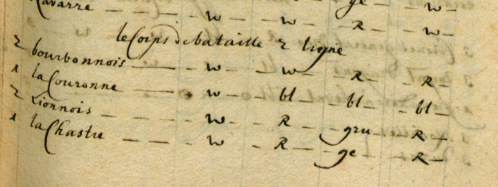 Navarre — w — w — R — w —
le Corps de bataille 2 ligne
2 bourbonnois — w — w — R — R
1 la Couronne — w — bl — bl — bl —
2 Lionnois — w — R — gru — R
1 la Chastre — w — R — ge — R —